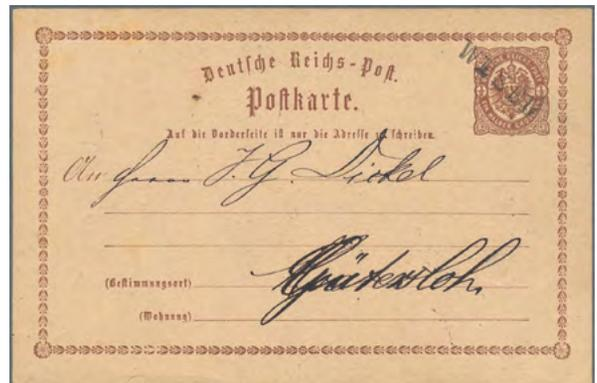 Deutsche Reichs-Post.
Postkarte.
Auf die Vorderseite ist nur die Adresse zu schreiben.
An Herrn J. G. Dickel
(Bestimmungsort) Gütersloh.
(Wohnung)